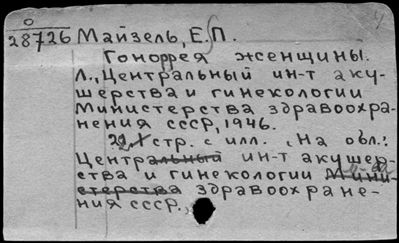 О
28726 Майзель, Е.П.
Гоноррея женщины.
Л., Центральный ин-т аку-
шерства и гинекологии
Министерства здравоохра-
нения СССР, 1946.
стр. с илл. На обл.:
Центральный ин-т акушер-
ства и гинекологии Мини-
стерства здравоохране-
ния СССР.